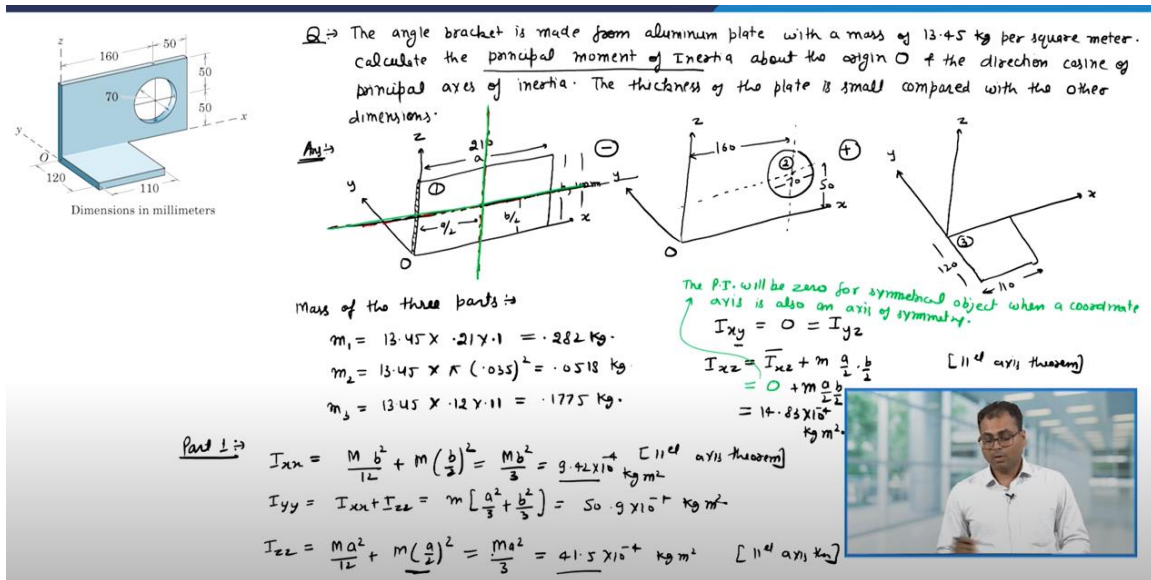 z
50
160
50
70
50
x
y
O
120
110
Dimensions in millimeters
Q → The angle bracket is made from aluminum plate with a mass of 13.45 kg per square meter.
calculate the principal moment of Inertia about the origin O & the direction cosine of
principal axes of inertia. The thickness of the plate is small compared with the other
dimensions.
Ans →
z
210
a
①
y
a/2
b/2
x
O
⊖
z
160
②
70
50
y
x
O
⊕
z
y
x
③
120
110
The P.I. will be zero for symmetrical object when a coordinate
axis is also an axis of symmetry.
Mass of the three parts →
m₁ = 13.45 × .21 × .1 = .282 kg.
m₂ = 13.45 × π (.035)² = .0518 kg
m₃ = 13.45 × .12 × .11 = .1775 kg.
Ixy = 0 = Iyz
Ixz = Īxz + m a/2 . b/2 [11el axis theorem]
= 0 + m a/2 b/2
= 14.83×10⁻⁴
kg m².
Part 1 →
Ixx = M b²/12 + m (b/2)² = Mb²/3 = 9.42×10⁻⁴ kg m² [11el axis theorem]
Iyy = Ixx + Izz = m [a²/3 + b²/3] = 50.9 ×10⁻⁴ kg m²
Izz = Ma²/12 + m(a/2)² = ma²/3 = 41.5 ×10⁻⁴ kg m² [11el axis thm]